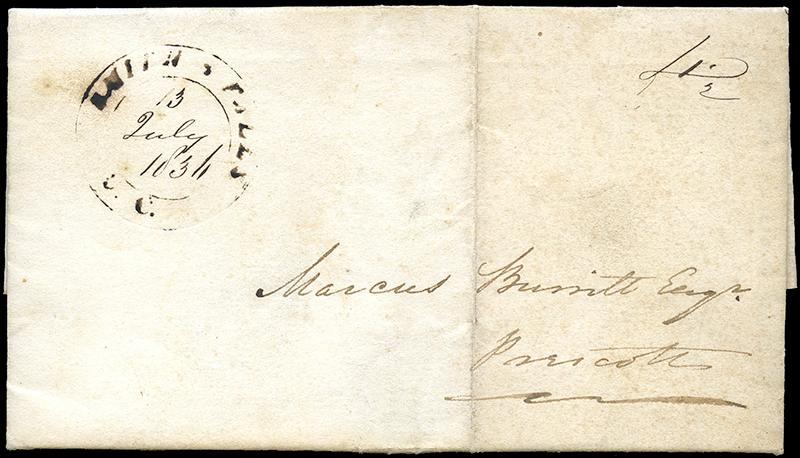 SMITH'S FALLS
13
July
1834
U. C.
Marcus Burritt Esqr.
Prescott